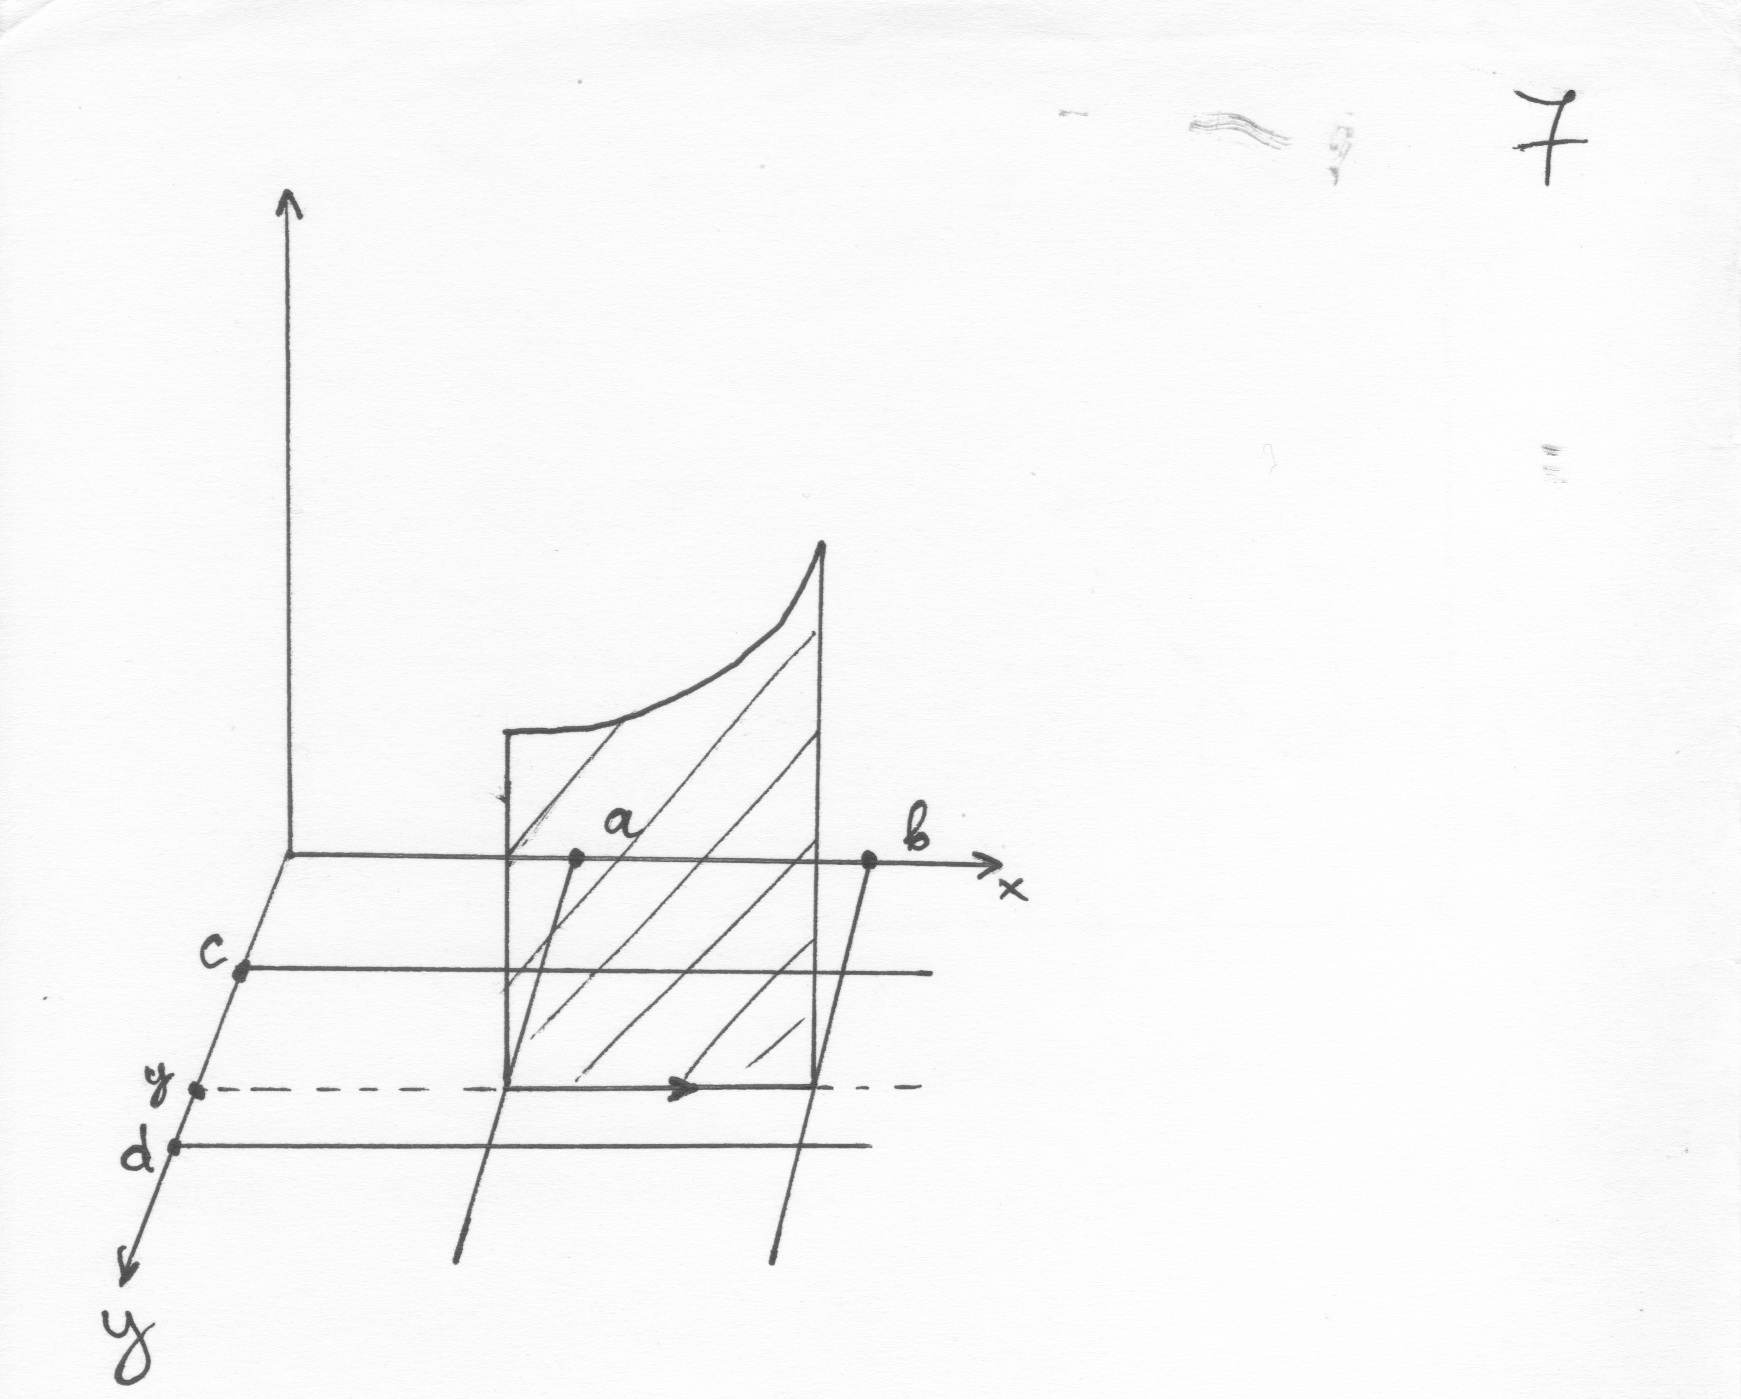 7
a
b
x
c
y
d
y